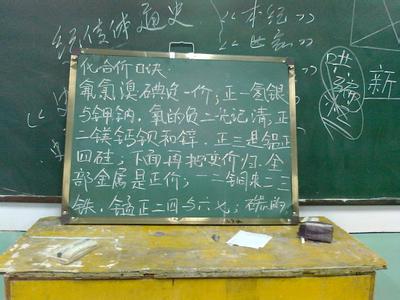 纪传体通史
《本纪》
《世家》
洪荒
新
化合价口诀
氟氯溴碘负一价；正一氢银
与钾钠。氧的负二先记清，正
二镁钙钡和锌。正三是铝正
四硅；下面再把变价归。全
部金属是正价；一二铜来二三
铁。锰正二四与六七；碳的